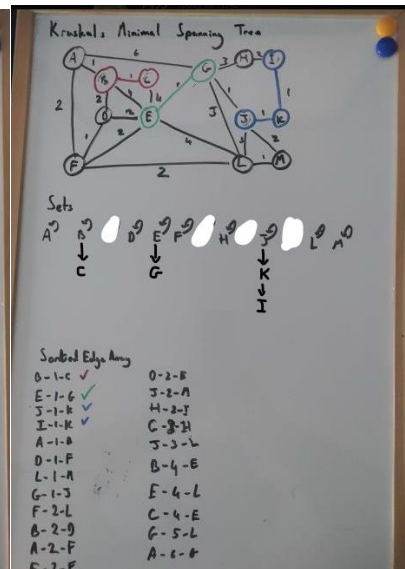 Kruskals Minimal Spanning Tree
6
A G 3 H 2 I
1 B 1 C 1
2 2 4 4 1 1
D 2 E 5 J 1 K
2 1 2 4 3 2
F 2 L 1 M
Sets
A B D E F H J L M
C G K
I
Sorted Edge Array
B-1-C
E-1-G
J-1-K
I-1-K
A-1-B
D-1-F
L-1-M
G-1-J
F-2-L
B-2-D
A-2-F
D-2-E
J-2-M
H-2-I
G-3-H
J-3-L
B-4-E
E-4-L
C-4-E
G-5-L
A-6-G